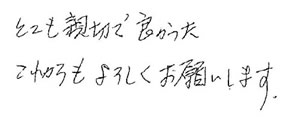 とても親切で良かった
これからもよろしくお願いします。